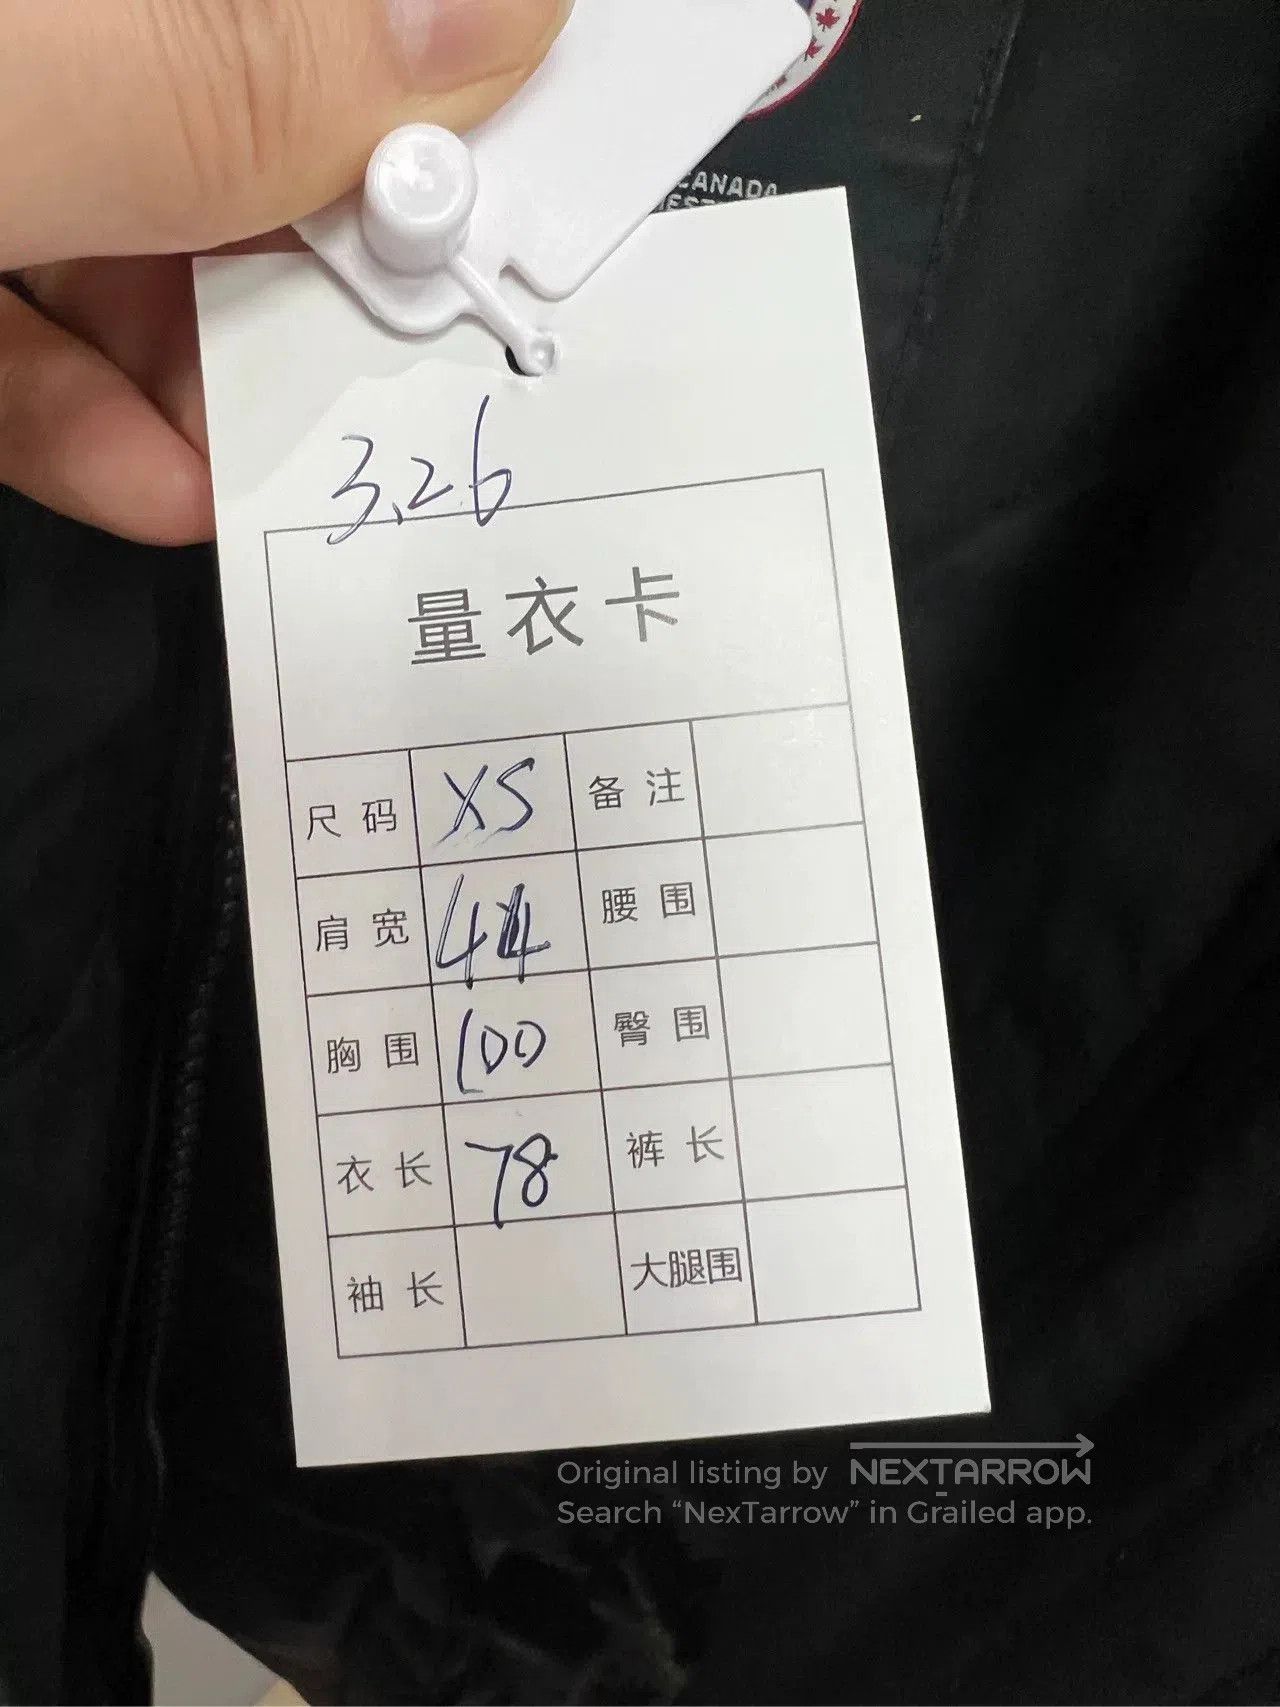 CANADA
3.26
量衣卡
尺码 XS 备注
肩宽 44 腰围
胸围 100 臀围
衣长 78 裤长
袖长 大腿围
Original listing by NEXTARROW
Search “NexTarrow” in Grailed app.